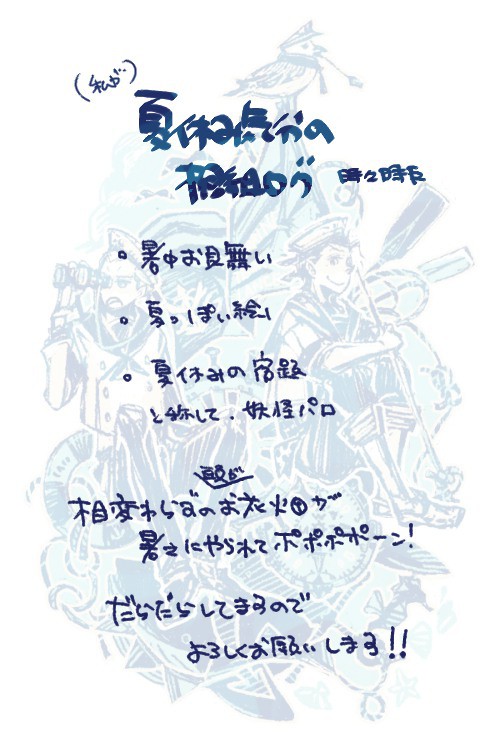 (私が)
夏休み気分の
相組ログ 時々時長
。暑中お見舞い
。夏っぽい絵
。夏休みの宿題
と称して、妖怪パロ
頭が
相変わらずのお花畑が
暑さにやられてポポポポーン!
だらだらしてますので
よろしくお願いします!!